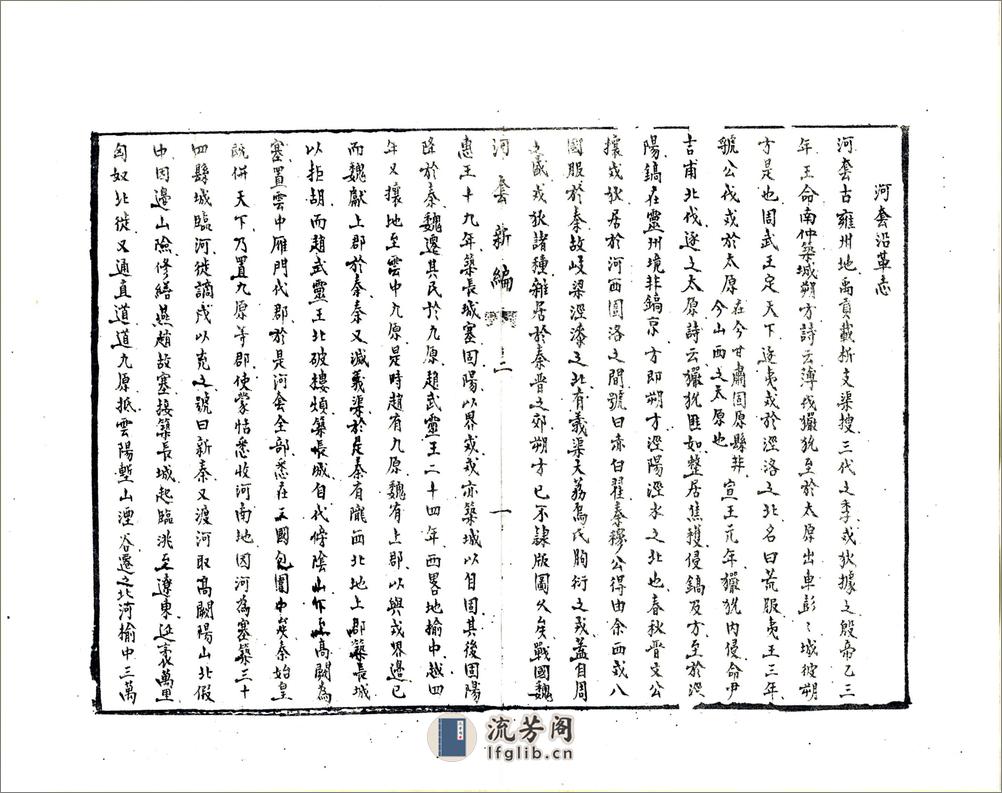 河套沿革志
河套古雍州地禹貢載析支渠搜三代之季戎狄據之殷帝乙三
年王命南仲築城朔方詩云薄伐玁狁至於太原出車彭彭城彼朔
方是也周武王定天下逐夷戎於涇洛之北名曰荒服夷王三年
虢公伐戎於太原在今甘肅固原縣非今山西之太原也宣王元年玁狁內侵命尹
吉甫北伐逐之太原詩云玁狁匪如整居焦穫侵鎬及方至於涇
陽鎬在靈州境非鎬京方即朔方涇陽涇水之北也春秋晉文公
攘戎狄居於河西圁洛之間號曰赤白翟秦穆公得由余西戎八
國服於秦故岐梁涇漆之北有義渠大荔烏氏朐衍之戎蓋自周
之衰戎狄諸種雜居於秦晉之郊朔方已不隸版圖久矣戰國魏
惠王十九年築長城塞固陽以界戎戎亦築城以自固其後固陽
降於秦魏遷其民於九原趙武靈王二十四年西畧地榆中越四
年又攘地至雲中九原是時趙有九原魏有上郡以與戎界邊已
而魏獻上郡於秦秦又滅義渠於是秦有隴西北地上郡築長城
以拒胡而趙武靈王北破摟煩築長城自代傍陰山下至高闕為
塞置雲中雁門代郡於是河套全部悉在三國包圍中矣秦始皇
既併天下乃置九原等郡使蒙恬悉收河南地因河為塞築三十
四縣城臨河徙謫戍以充之號曰新秦又渡河取高闕陽山北假
中因邊山險修繕燕趙故塞接築長城起臨洮至遼東延袤萬里
匈奴北徙又通直道道九原抵雲陽塹山湮谷遷之北河榆中三萬
河套新編
一
流芳阁
lfglib.cn